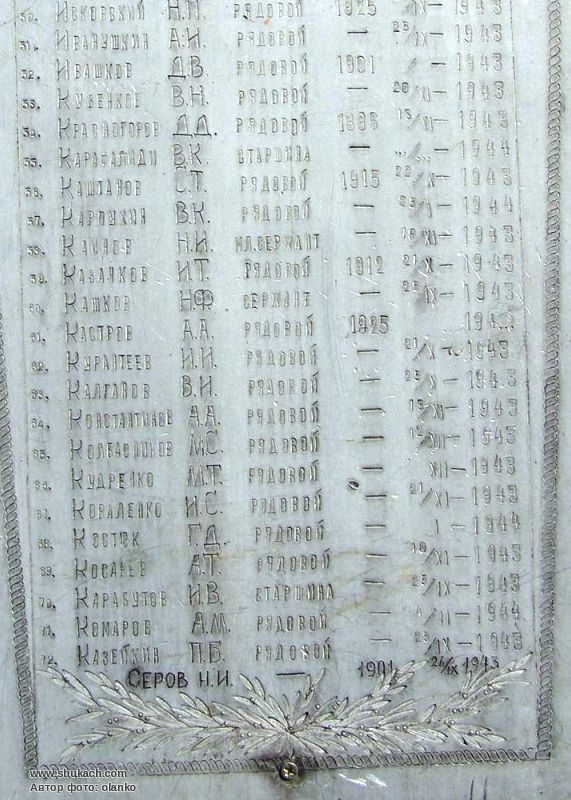 50. Искорский Н.П. рядовой 1925 /IX-1943
51. Иванушкин А.И. рядовой — 25/IX-1943
52. Ивашков Д.В. рядовой 1901 - 1943
53. Кубенков В.Н. рядовой — 20/XI-1943
54. Красногоров Д.Д. рядовой 15/XI-1943
55. Карафалиди В.К. старшина — ../...-1944
56. Каштанов С.Т. рядовой 1915 22/X-1943
57. Карпухин В.К. рядовой — 25/I-1944
58. Н.И. мл.сержант — /XI-1943
59. Казанков И.Т. рядовой 1912 21/X-1943
60. Кашков Н.Ф. сержант — 25/IX-1943
61. Кастров А.А. рядовой 1925 194...
62. Курантеев И.И. рядовой — 21/X-1943
63. Калганов В.И. рядовой — 25/X-1943
64. Константинов А.А. рядовой — 1943
65. Колбасников М.С. рядовой — 1943
66. Кудренко М.Т. рядовой — XII-1943
67. Коваленко И.С. рядовой — 21/XI-1943
68. Костюк Г.Д. рядовой — I-1944
69. Косаев А.Т. рядовой — 10/XI-1943
70. Карабутов И.В. старшина — 25/IX-1943
71. Комаров А.М. рядовой — 4/II-1944
72. Казейкин П.Б. рядовой — 25/IX-1943
Серов Н.И. — 1901 26/IX 1943
www.shukach.com
Автор фото: olanko